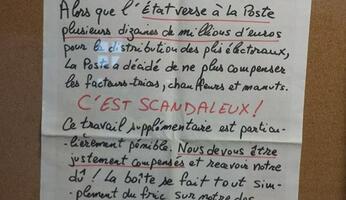 Alors que l'État verse à la Poste
plusieurs dizaines de millions d'euros
pour la distribution des plis électoraux,
La Poste a décidé de ne plus compenser
les facteurs-trices, chauffeurs et manuts.
C'EST SCANDALEUX!
Ce travail supplémentaire est particu-
-lièrement pénible. Nous devons être
justement compensés et recevoir notre
dû! La boîte se fait tout sim-
-plement du fric sur notre dos